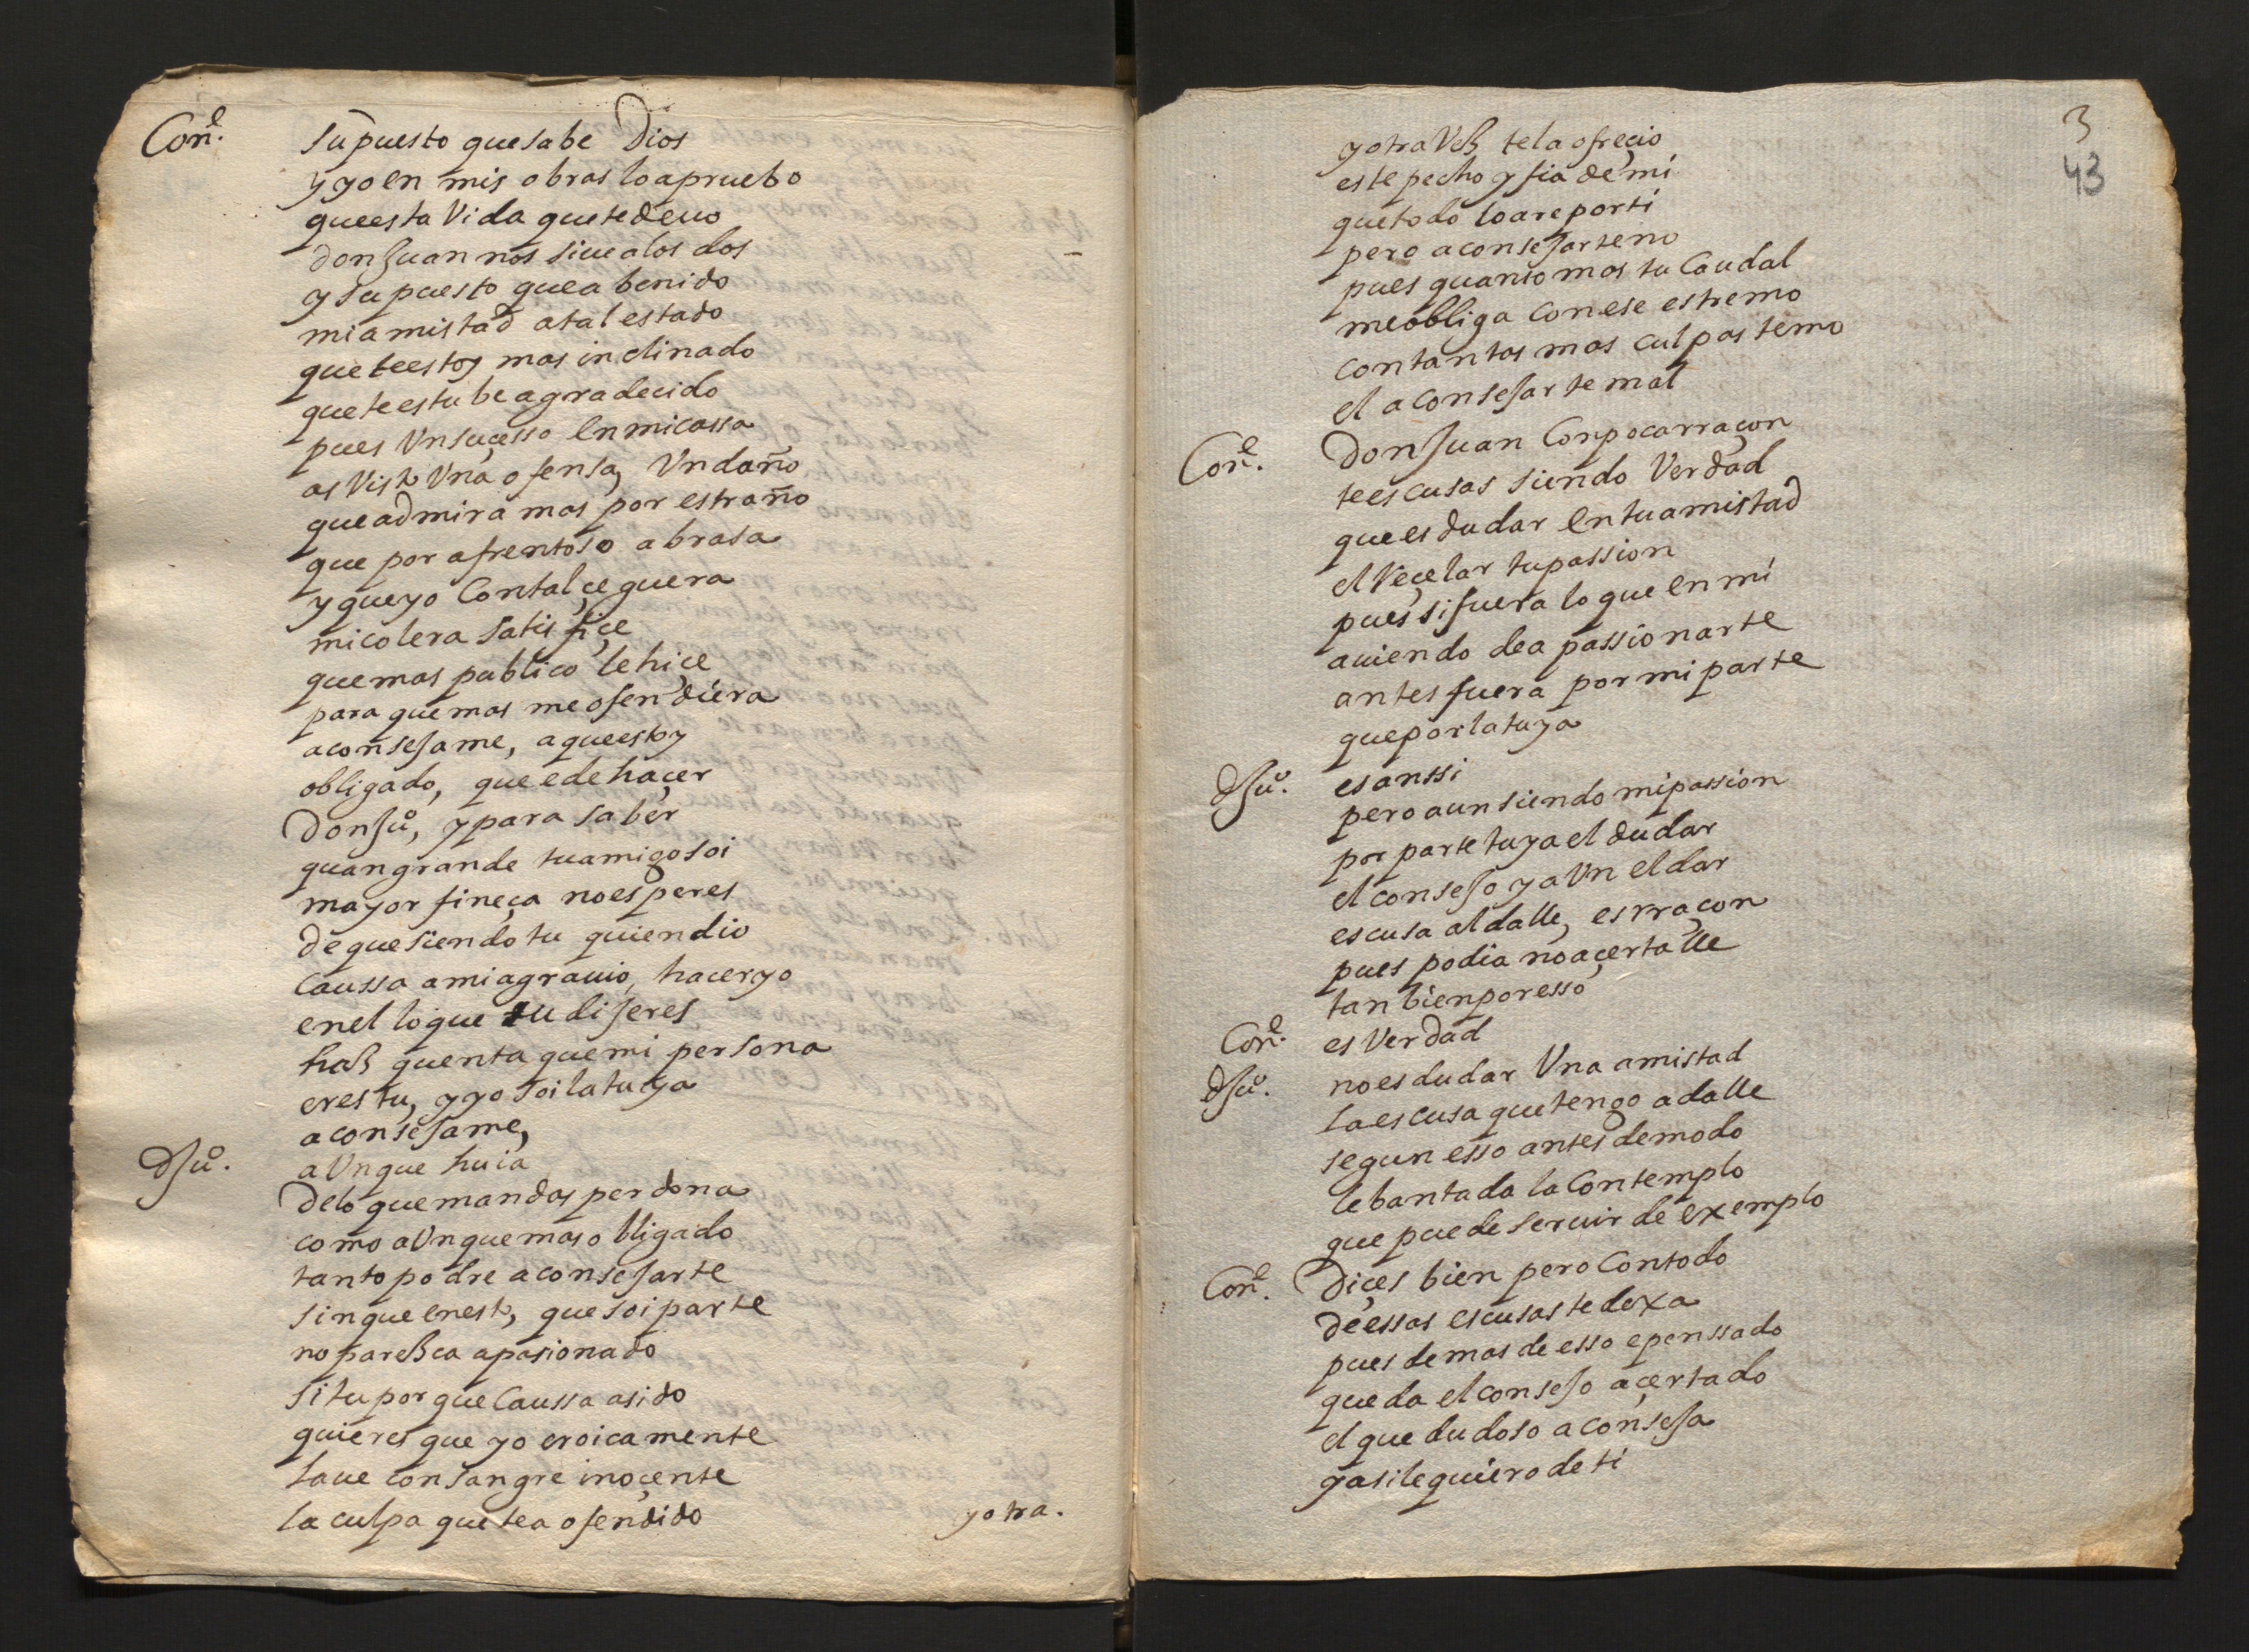 Con.ᵉ supuesto que sabe Dios
y yo en mis obras lo apruebo
que esta Vida que te deuo
don Juan nos siue a los dos
y supuesto que a benido
mi amistad a tal estado
que te estoy mas inclinado
que te estube agradecido
pues Vn suçesso en mi cassa
as Visto Vna ofensa, Vn daño
que admira mas por estraño
que por afrentoso abrasa
y que yo Con tal çeguera
mi colera satisfiçe
que mas publico le hiçe
para que mas me ofendiera
aconsejame, a que estoy
obligado, que e de haçer
Don Juº, y para saber
quan grande tu amigo soi
mayor fineça no esperes
de que siendo tu quien dio
Caussa a mi agrauio, hacer yo
en el lo que tu dijeres
haz quenta que mi persona
eres tu, y yo soi la tuya
aconsejame,
dJuº. aVnque huia
de lo que mandas perdona
como aVnque mas obligado
tanto podre aconsejarte
sin que en esto, que soi parte
no parezca apasionado
si tu porque Caussa a sido
quieres que yo eroicamente
laue con sangre inoçente
la culpa que te a ofendido
y otra.
3
43
y otra Vez te la ofreçio
este pecho y fia de mi
que todo lo are por ti
pero aconsejarte no
pues quanto mas tu Caudal
me obliga con ese estremo
con tantas mas culpas temo
el aconsejarte mal
Con.ᵉ Don Juan Con poca rraçon
te escusas siendo Verdad
que es dudar en tu amistad
el reçelar tu passion
pues si fuera lo que en mi
auiendo de apassionarte
antes fuera por mi parte
que por la tuya
dJuº. es anssi
pero aun siendo mi passion
por parte tuya el dudar
el consejo y aVn el dar
escusa al dalle, es rraçon
pues podia no açertalle
tan bien por esso
Con.ᵉ es Verdad
dJuº. no es dudar Vna amistad
la escusa que tengo a dalle
segun esso antes de modo
lebantada la Contemplo
que puede seruir de exemplo
Con.ᵉ Diçes bien pero Con todo
de essas escusas te dexa
pues demas de esso e penssado
que da el consejo açertado
el que dudoso aconseja
y asi le quiero de ti